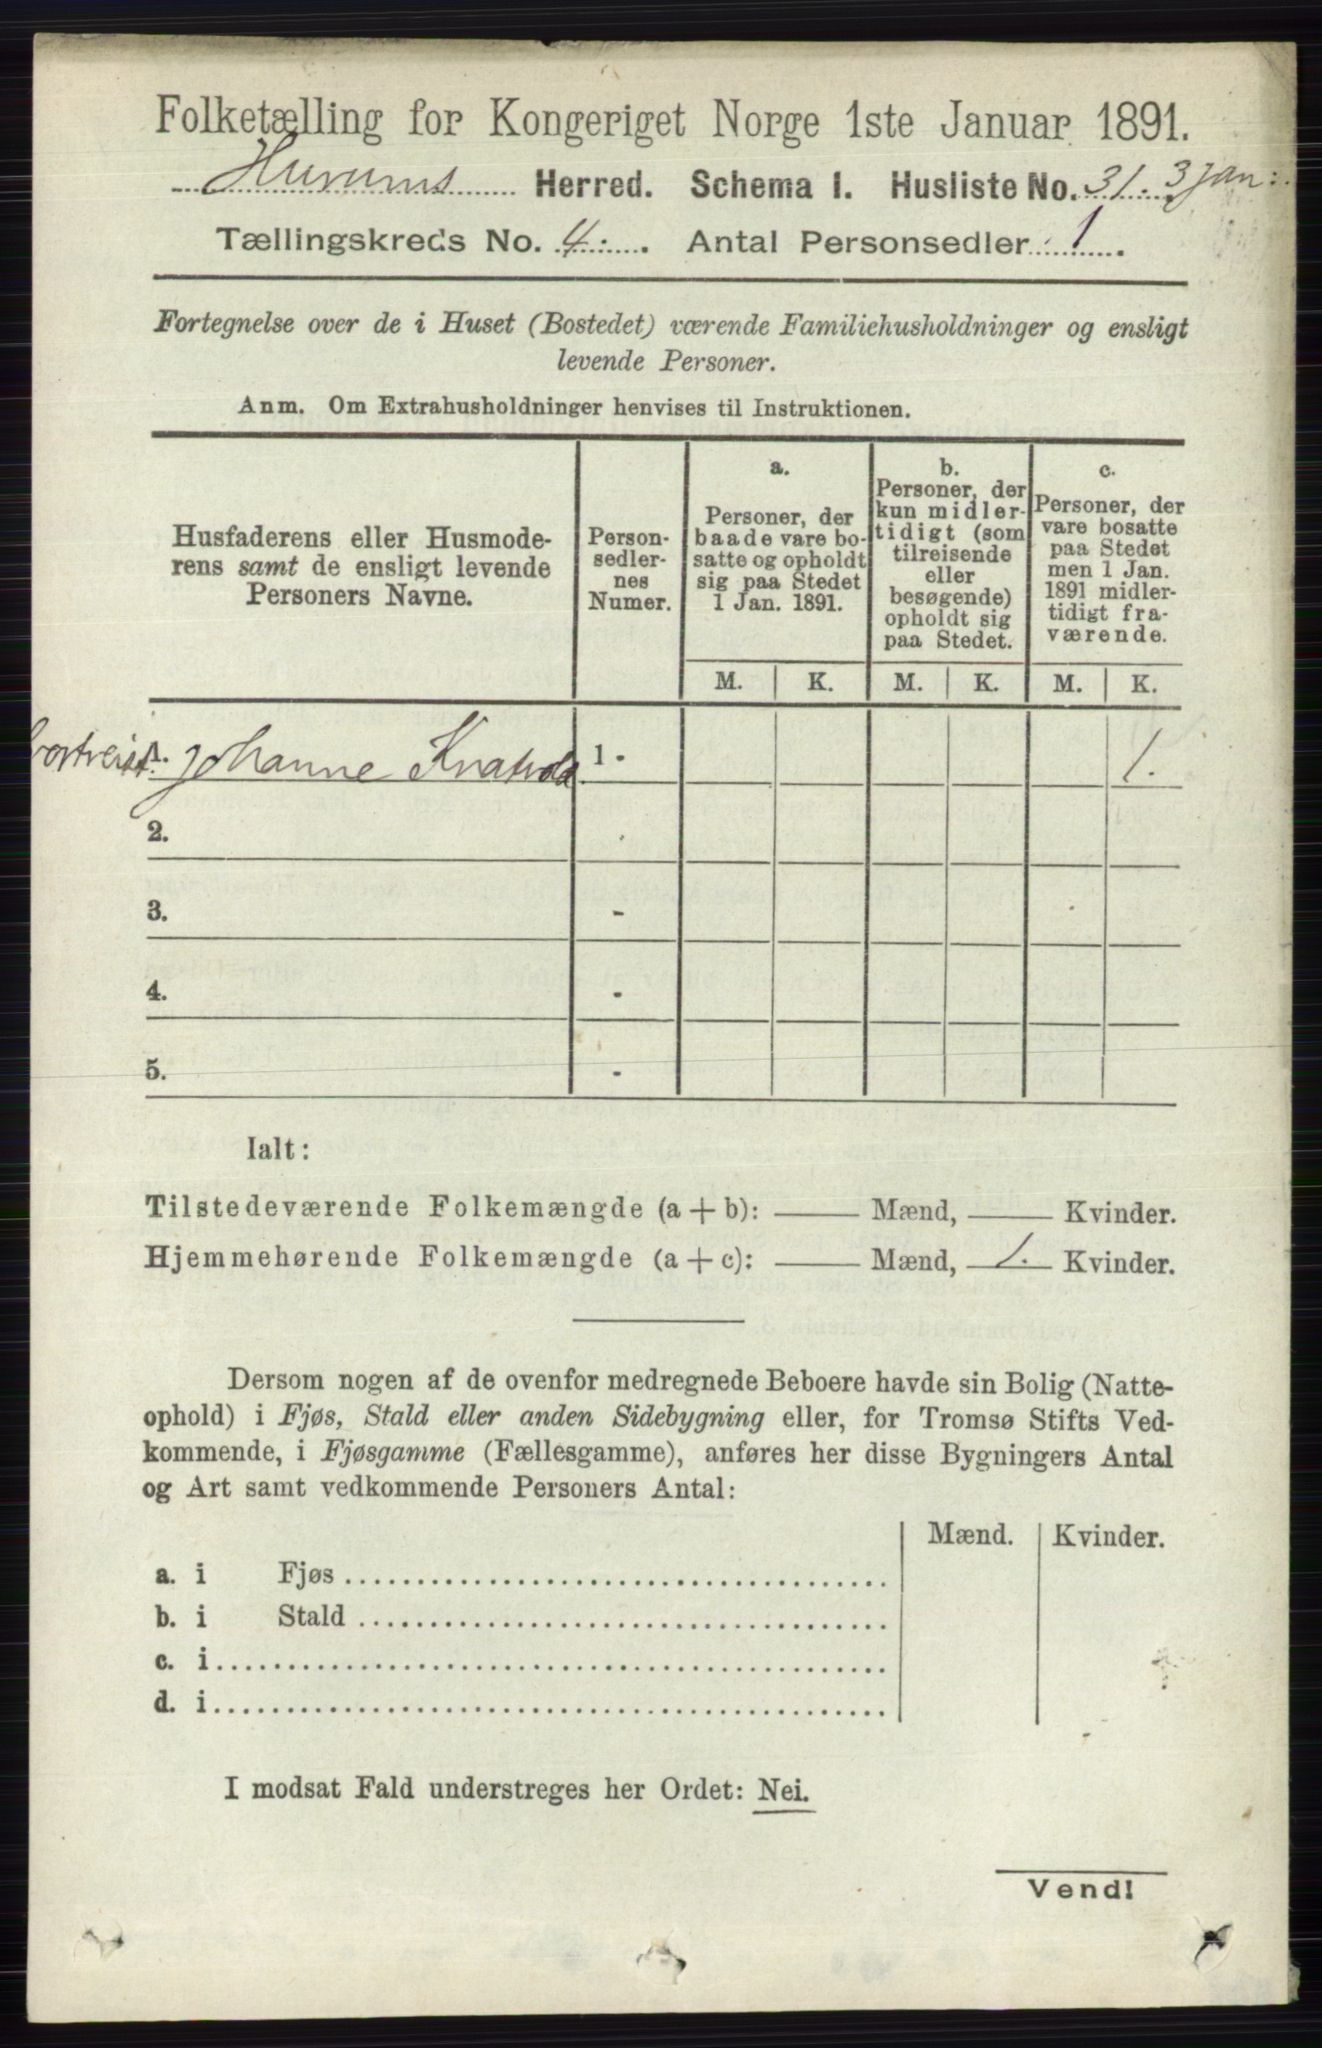 Folketælling for Kongeriget Norge 1ste Januar 1891.
Hurums Herred. Schema 1. Husliste No. 31. 3 Jan:
Tællingskreds No. 4. Antal Personsedler 1.
Fortegnelse over de i Huset (Bostedet) værende Familiehusholdninger og ensligt
levende Personer.
Anm. Om Extrahusholdninger henvises til Instruktionen.
Husfaderens eller Husmode-
rens samt de ensligt levende
Personers Navne.
Person-
sedler-
nes
Numer.
a.
Personer, der
baade vare bo-
satte og opholdt
sig paa Stedet
1 Jan. 1891.
b.
Personer, der
kun midler-
tidigt (som
tilreisende
eller
besøgende)
opholdt sig
paa Stedet.
c.
Personer, der
vare bosatte
paa Stedet
men 1 Jan.
1891 midler-
tidigt fra-
værende.
M. K. M. K. M. K.
bortreist. 1. Johanne 1 - 1.
2.
3. -
4. -
5. -
Ialt:
Tilstedeværende Folkemængde (a + b): Mænd, Kvinder.
Hjemmehørende Folkemængde (a + c): Mænd, 1. Kvinder.
Dersom nogen af de ovenfor medregnede Beboere havde sin Bolig (Natte-
ophold) i Fjøs, Stald eller anden Sidebygning eller, for Tromsø Stifts Ved-
kommende, i Fjøsgamme (Fællesgamme), anføres her disse Bygningers Antal
og Art samt vedkommende Personers Antal:
Mænd. Kvinder.
a. i Fjøs
b. i Stald
c. i
d. i
I modsat Fald understreges her Ordet: Nei.
Vend!